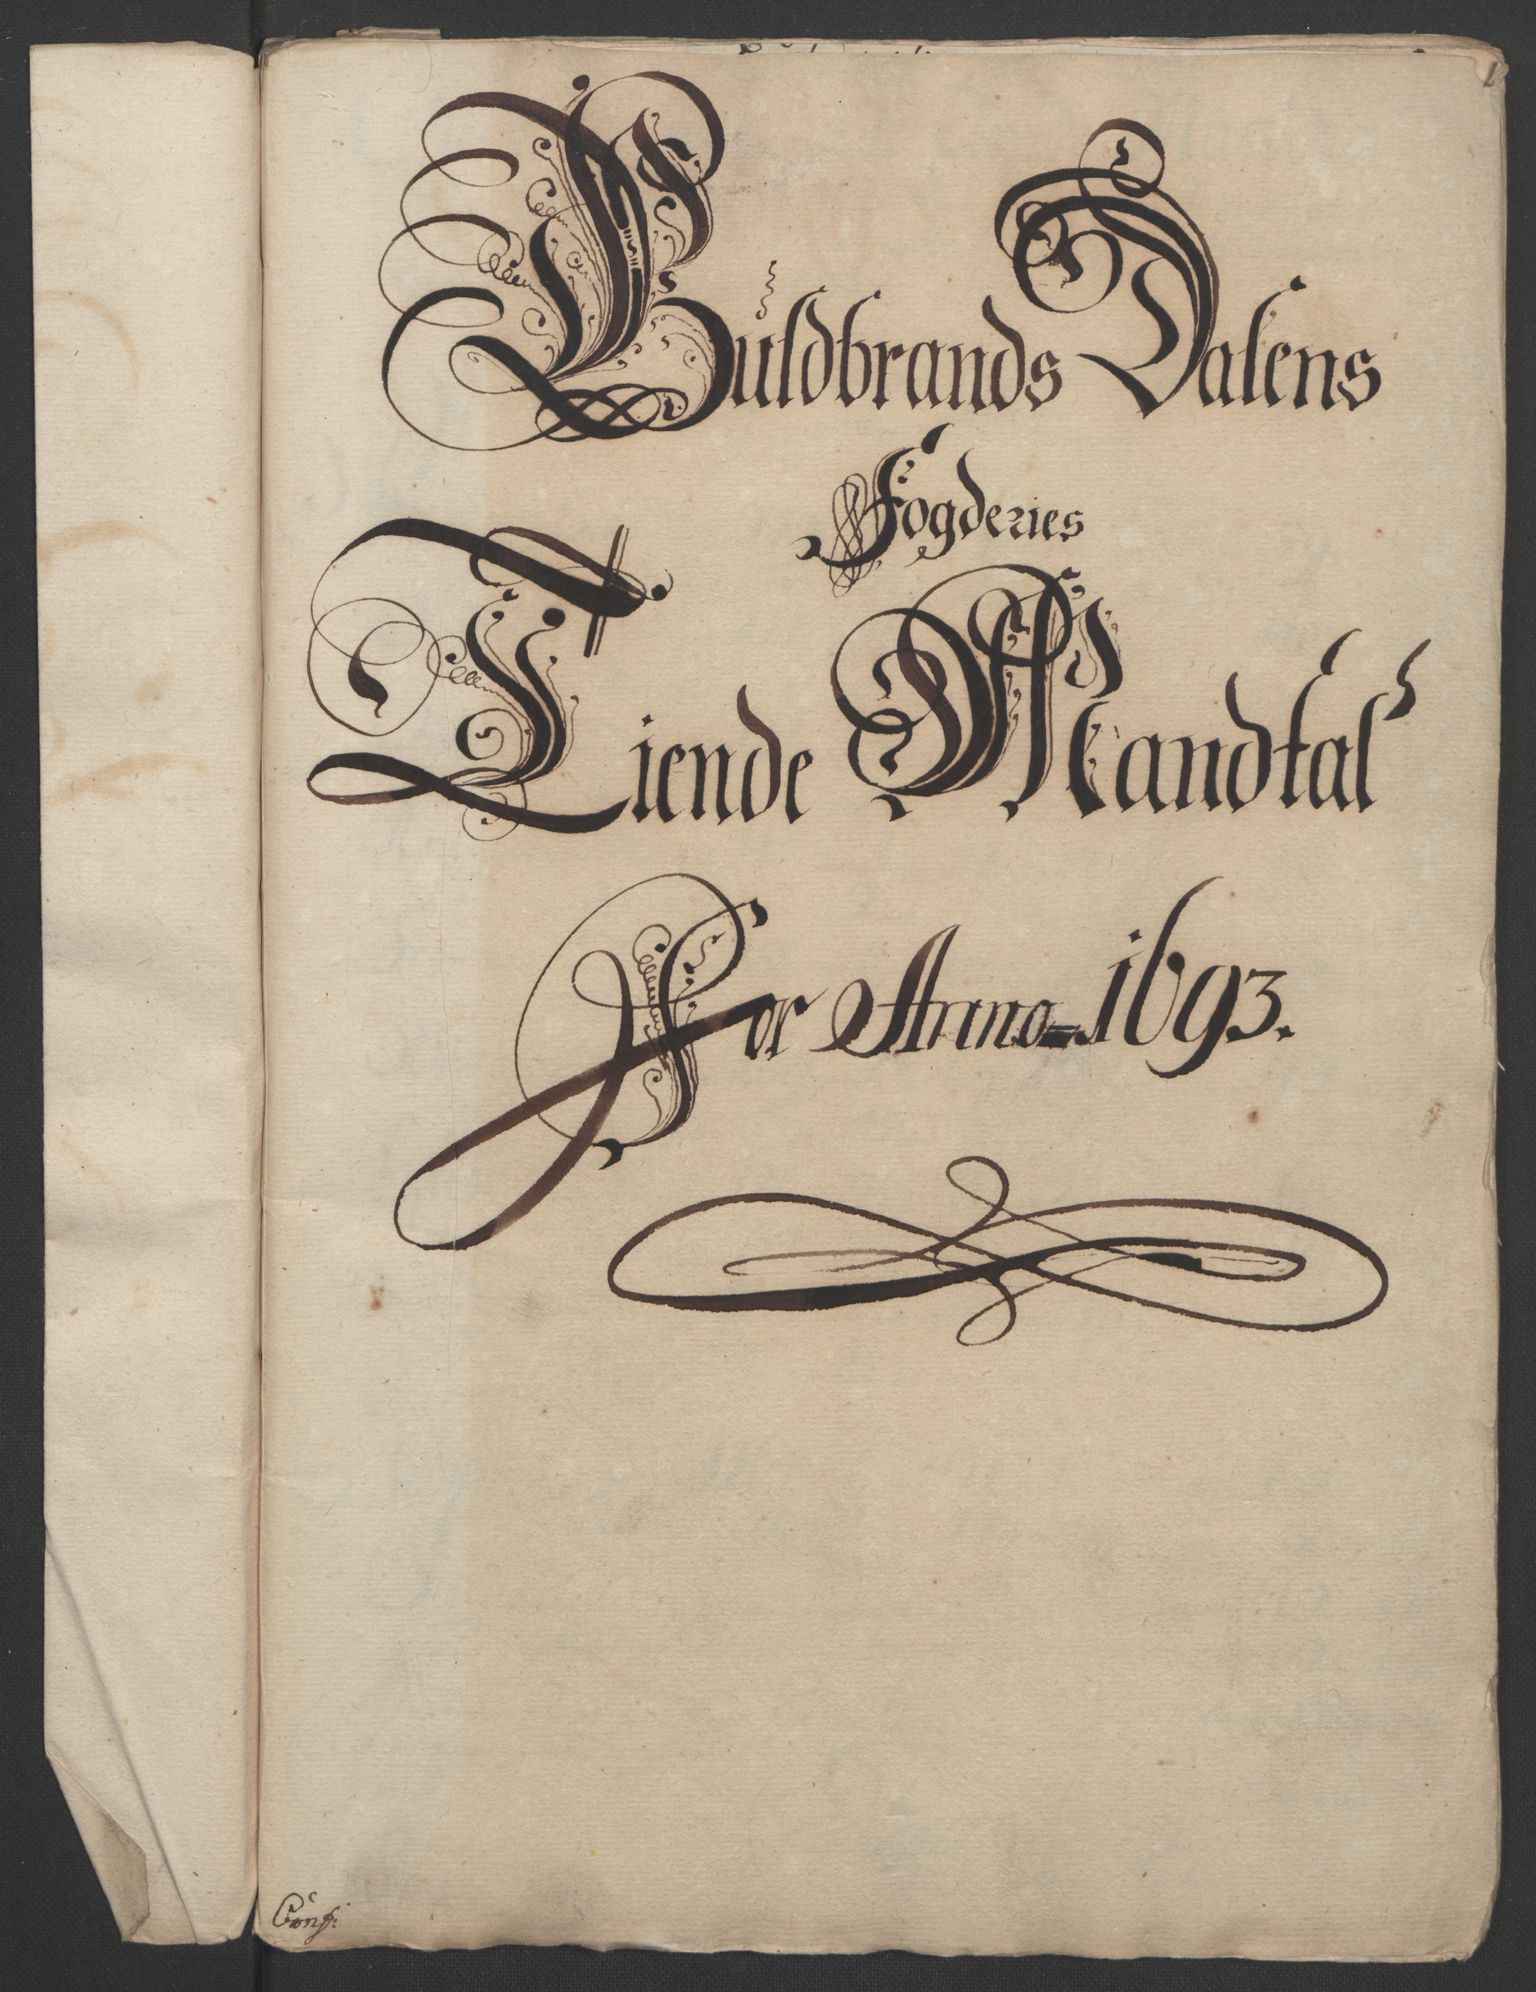 1
Guldbrands Dalens
Fogderies
Tiende Mandtal
For Anno 1693.